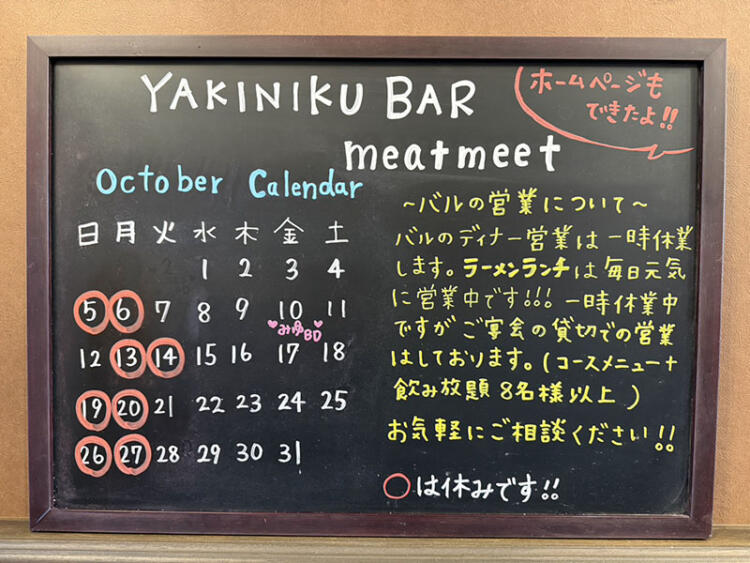 YAKINIKU BAR
meatmeet
ホームページも
できたよ!!
October Calendar
日 月 火 水 木 金 土
1 2 3 4
5 6 7 8 9 10 11
みゆBD
12 13 14 15 16 17 18
19 20 21 22 23 24 25
26 27 28 29 30 31
~バルの営業について~
バルのディナー営業は一時休業
します。ラーメンランチは毎日元気
に営業中です!!! 一時休業中
ですがご宴会の貸切での営業
はしております。(コースメニュー+
飲み放題 8名様以上 )
お気軽にご相談ください!!
○は休みです!!